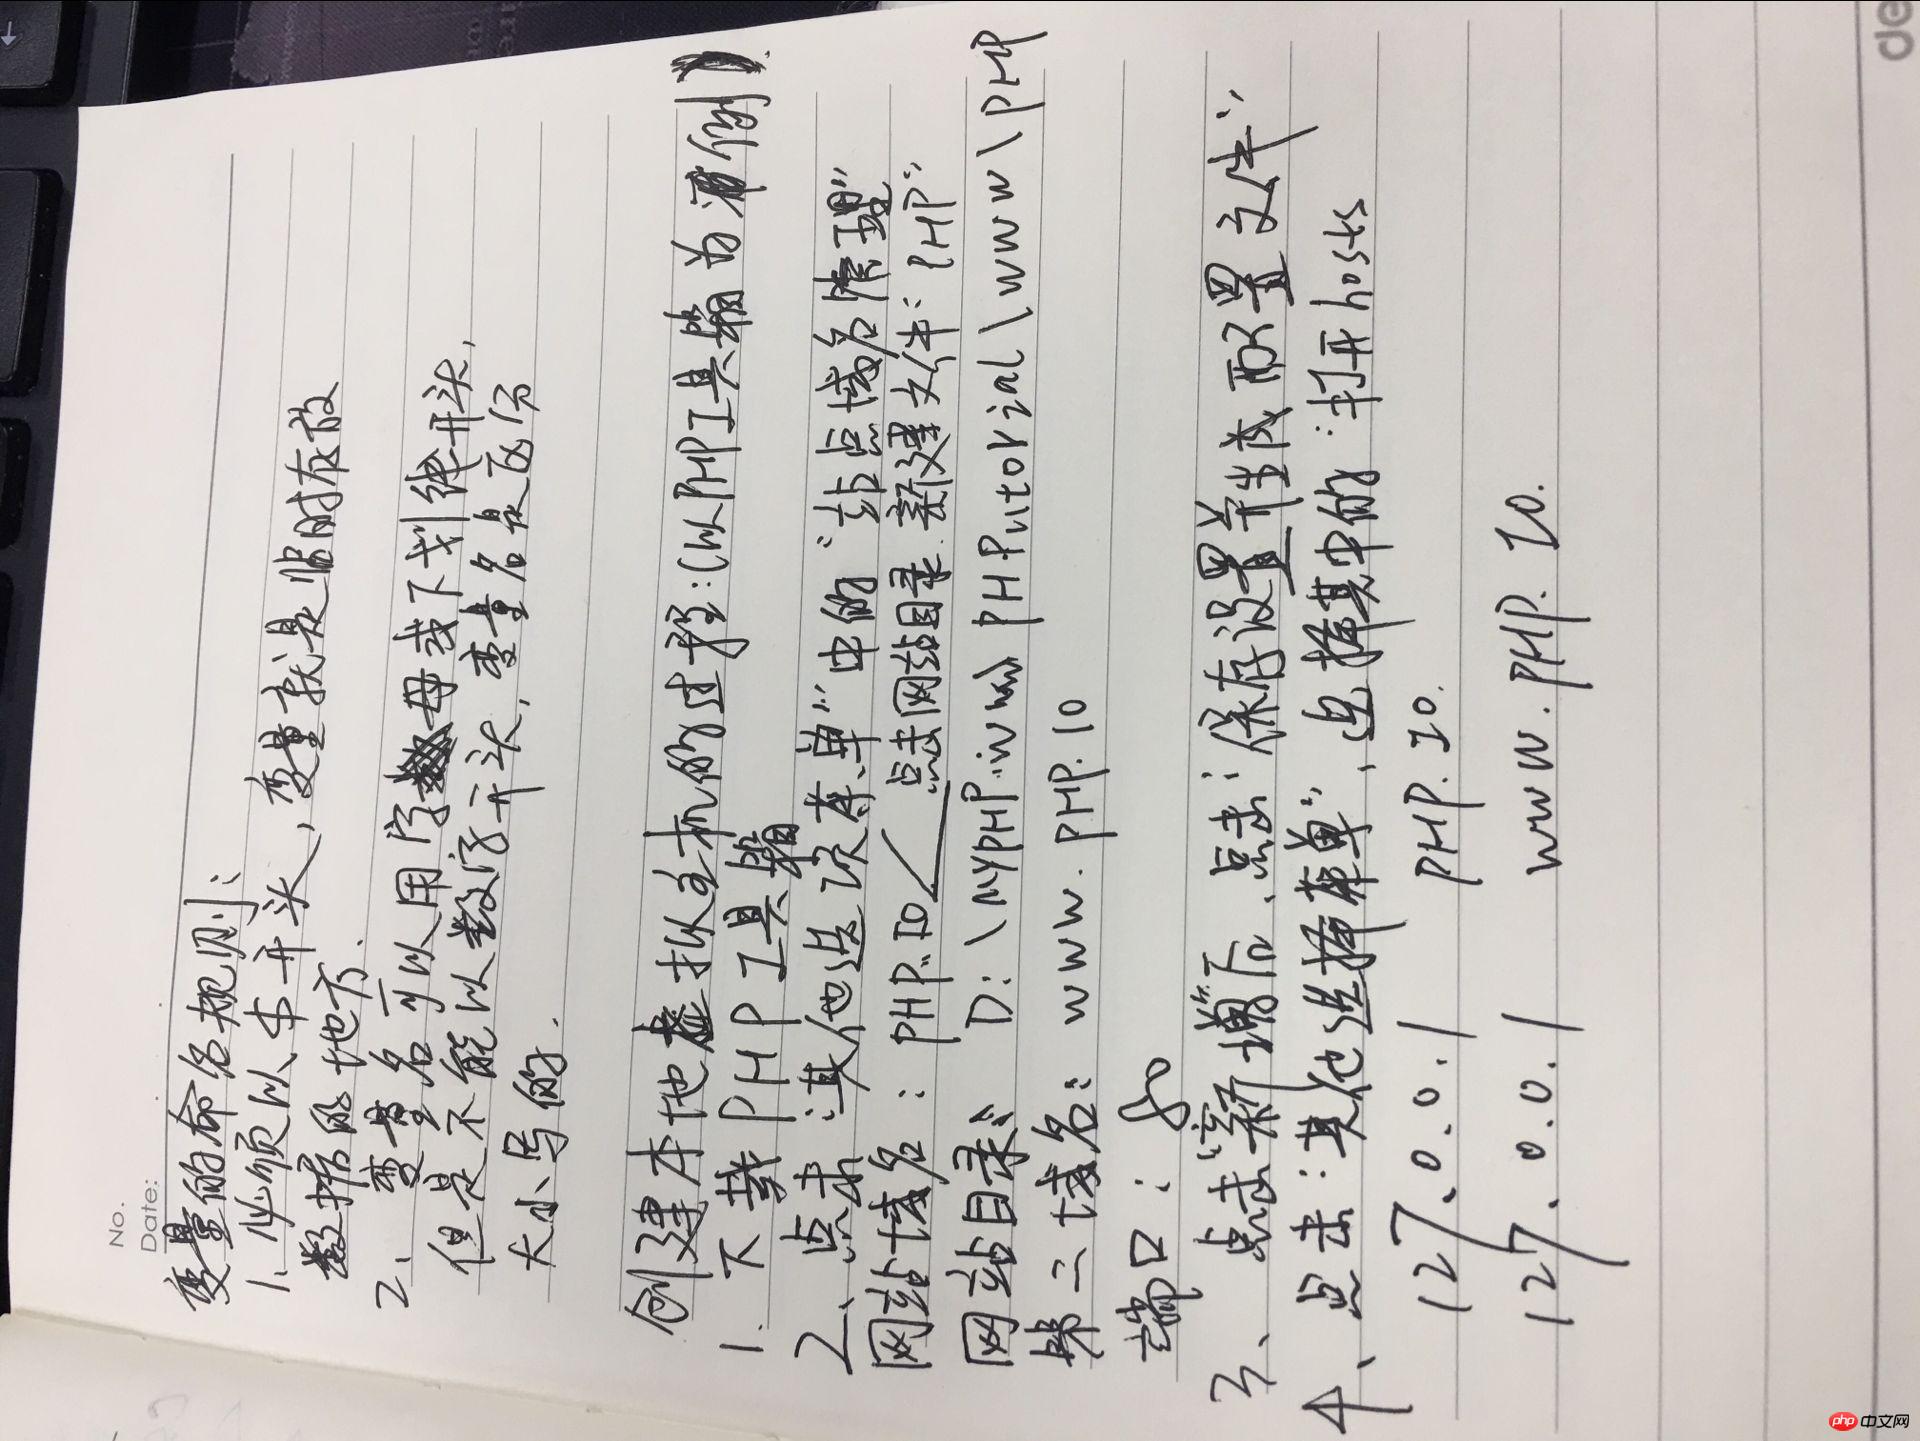 No.
Date:
变量的命名规则：
1、必须以$开头，变量就是临时存放
数据的地方.
2、变量名可以用字母或下划线开头，
但是不能以数字开头，变量名是区分
大小写的.
创建本地虚拟主机的过程：（以PHP工具箱为例）
1. 下载PHP工具箱
2、点击：其他选项菜单"中的"站点域名管理"
网站域名：PHP.IO 点击网站目录.新建文件：PHP"
网站目录： D:\MYPHP.www PHPutorial\www\PHP
第二域名：www.PHP.IO
端口：80
3、点击"新增"后、点击：保存设置并生成配置文件"
4、点击：其他选择菜单"、选择其中的：打开hosts
127.0.0.1 PHP.IO.
127.0.0.1 www.PHP.IO.
de
php 中文网